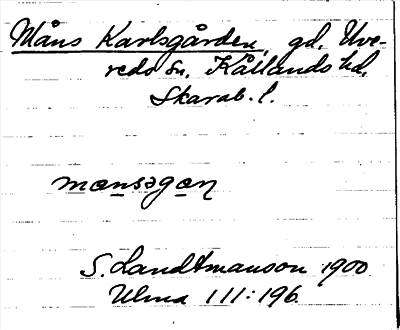 Måns Karlsgården, gd. Uve-
reds sn, Kållands hd,
Skarab. l.
mɑnsəgɑn
S. Landtmanson 1900
Ulma 111:196.